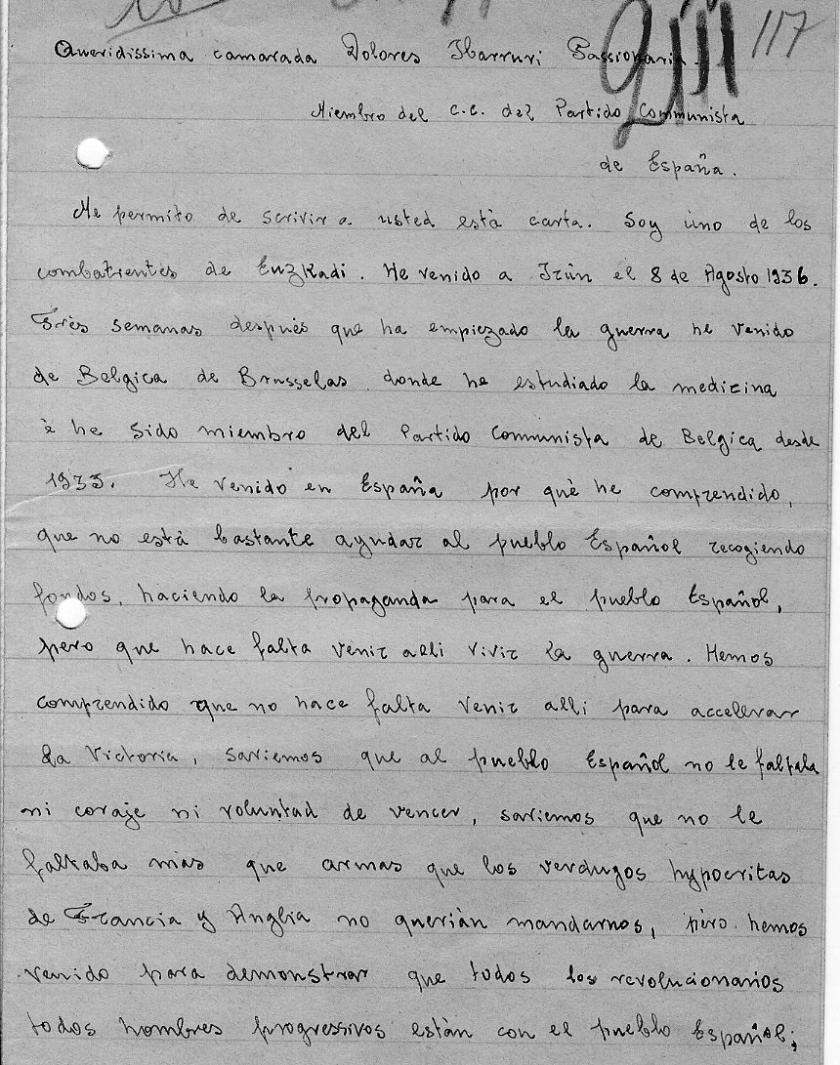 117
Queridissima camarada Dolores Ibarruri Passionaria.
Miembro del c.c. del Partido Communista
de España.
Me permito de scrivir a usted està carta. Soy ùno de los
combatientes de Euzkadi. He venido a Irùn el 8 de Agosto 1936.
Très semanas despuès que ha empiezado la guerra he venido
de Belgica de Brusselas donde he estudiado la medicina
è he sido miembro del Partido Communista de Belgica desde
1933. He venido en España por què he comprendido,
que no està bastante ayudar al pueblo Español recogiendo
fondos, haciendo la propaganda para el pueblo Español,
pero que hace falta venir alli vivir la guerra. Hemos
comprendido que no hace falta venir alli para accelerar
la Victoria, sariemos que al pueblo Español no le faltala
ni coraje ni voluntad de vencer, sariemos que no le
faltaba màs que armas que los verdugos hypocritas
de Francia y Anglia no queriàn mandarnos, pèro hemos
venido para demonstrar que todos los revolucionarios
todos hombres progressivos estàn con el pueblo Español;